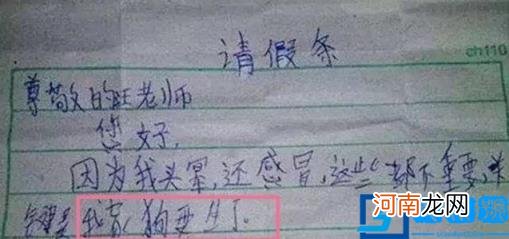 请假条
ch110
尊敬的旺老师
您好,
因为我头晕,还感冒,这些都不重要,关
键是我家狗要生了.
河南龙网